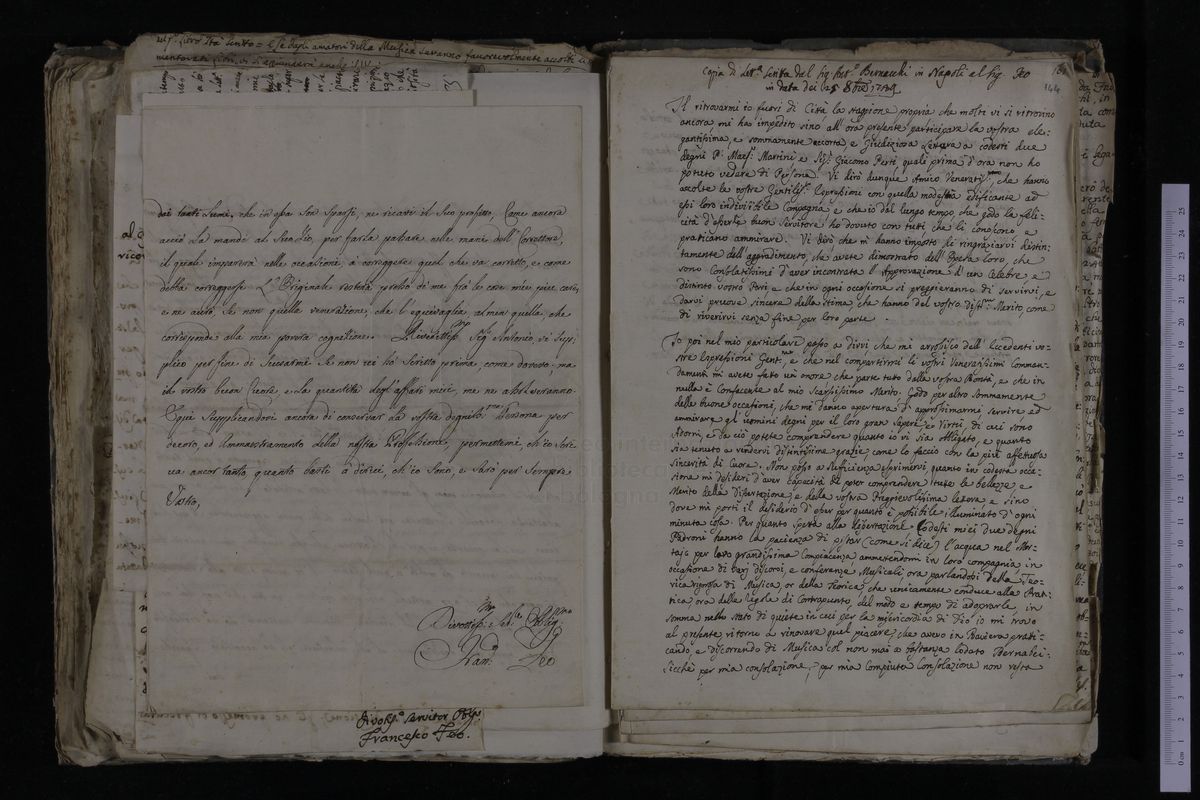 del pmo. Libro stà scritto = e se dagli amatori della Musica saranno favorevolmente accolti li
mentovati libri, vi si aggiunderà anche
dai tanti lumi, che in essa son sparsi, ne ricavi il suo profitto, Come ancora
acciò la mandi al Suo Zio, per farla passare nelle mani dell' Correttore,
il quale imparerà nelle occasioni, à correggere quel che và corretto, e come
debba correggersi. L'Originale resterà presso di me frà le cose mie piu care,
e ne avrò, se non quella venerazione, che l'equivaglia, almen quella, che
corrisponde alla mia povera cognitione. Riveritissmo. Sig. Antonio, vi Sup
plico per fine di Scusarmi se non vi hò Scritto prima, come dovevo, ma
il vostro buon Cuore, e la quantità degl'affari miei, me ne assolveranno.
E quì Supplicandovi ancora di conservar la vostra degnissma. Persona per
decoro, ed Ammaestramento della nostra Professione, permettemi, ch'io scri
va ancor tanto, quanto basti à dirvi, ch'io Sono, e Sarò per Sempre
Vostro,
Devotissmo. ed
Francco. Feo
divotiss.o servitor Obbmo.
Francesco Feo.
Copia di letra. scritta dal Sig. Anto. Bernacchi in Napoli al Sig. Feo
in data dei 25 8bre 1749
144
Il ritrovarmi io fuori di Città la staggione propria che molti vi si ritrovino
ancora mi ha impedito sino all'ora presente participare la vostra ele-
gantissima e sommamente accorta e Giudiziosa Lettera a codesti due
degni P. Maes. Martini e Sig. Giacomo Perti quali prima d'ora non ho
potuto vedere di Persona. Vi dirò dunque Amico Veneratissmo. che hanno
accolte le vostre Gentiliss. Espressioni con quella modestia edificante ad
essi loro indivisibile Compagna e che io dal lungo tempo che godo la feli-
cità d'esserle buon Servitore ho dovuto con tuti che li conoscono e
praticano ammirare. Vi dirò che m'hanno imposto di ringraziarvi distin-
tamente dell'aggradimento, che avete dimostrato dell'Opera loro, che
sono Consolatissimi d'aver incontrata l'Approvazione d'un Celebre e
distinto vostro Pari e che in ogni occasione si preggieranno di servirvi, e
darvi pruove sincere della stima, che hanno del vostro distmo. Merito, come
di riverirvi senza fine per loro parte.
Io poi nel mio particolare posso a dirvi che mi arrossisco dell'Eccedenti vo-
stre Espressioni Gentme. e che nel compartirmi li vostri Veneratissimi Comman-
damenti m'avete fato un onore che parte tuto dalla vostra Bontà, e che in
nulla è Confacente al mio Scarsissimo Merito. Godo per altro sommamente
delle buone occasioni, che mi danno apertura d'approssimarmi servire ed
ammirare gl'uomini degni per il loro gran Sapere e Virtù, di cui sono
Adorni, e da ciò potete comprendere quanto io vi sia obligato, e quanto
sia tenuto a rendervi distintissime grazie, come lo faccio con la più affetuosa
sincerità di Cuore. Non posso a sufficienza esprimervi, quanto in codesta occa-
sione mi desideri d'aver capacità di poter comprendere tute le bellezze, e
Merito della Dissertazione, e della vostra Pregievolissima letera, e sino
dove mi porti il desiderio d'esser per quanto è possibile illuminato d'ogni
minuta cosa. Per quanto spetta alla dissertazione Codesti miei due degni
Padroni hanno la pacienza di pistar (come si dice) l'acqua nel mor-
tajo per loro grandissima Compiacenza ammettendomi in loro compagnia in
occasione di varj discorsi, e conferenze Musicali ora parlandosi della Teo-
rica rigorosa di Musica, or della Teorica, che unicamente conduce alla Prat-
tica ora delle regole di Contrapunto, del modo e tempo di adoprarle, in
somma nello stato di quiete in cui per la misericordia di Dio io mi trovo
al presente, ritorno a rinovare quel piacere, che avevo in Baviera prati-
cando, e discorrendo di Musica col non mai a bastanza lodato Bernabei-
sicchè per mia consolazione, per mia Compiuta Consolazione non resta